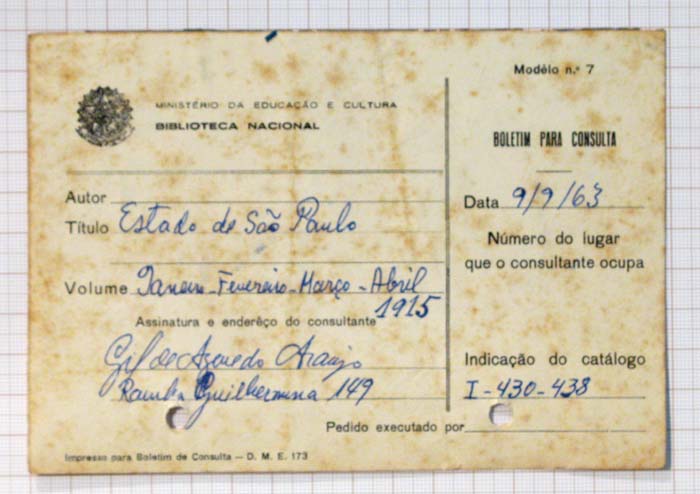 Modêlo n.º 7
MINISTÉRIO DA EDUCAÇÃO E CULTURA
BIBLIOTECA NACIONAL
BOLETIM PARA CONSULTA
Autor
Título Estado de São Paulo
Volume Janeiro-Fevereiro-Março-Abril
1915
Assinatura e enderêço do consultante
Gil de Azevedo Araujo
Rainha Guilhermina 149
Data 9/9/63
Número do lugar
que o consultante ocupa
Indicação do catálogo
I-430-438
Pedido executado por
Impresso para Boletim de Consulta — D. M. E. 173